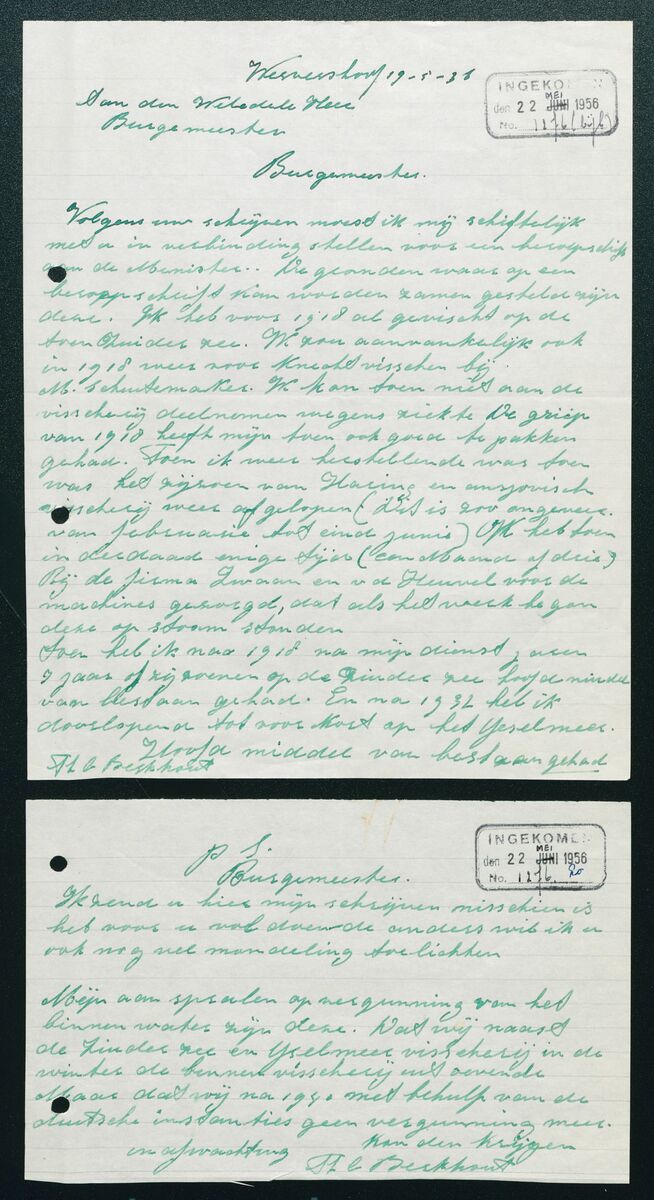 Wervershoof 19-5-36
INGEKOMEN
MEI
den 22 JUNI 1956
No. 1176 (bijl)
Aan den Weledele Heer
Burgemeester
Burgemeester.
Volgens uw schrijven moest ik mij schiftelijk
met u in verbinding stellen voor een beroepschift
aan de Menister.. De gronden waar op een
beroepschrift kan worden zamen gesteld zijn
deze. Ik heb voor 1918 al gevischt op de
toen Zuider zee. Ik zou aanvankelijk ook
in 1918 weer voor knecht visschen bij
M. Schuitemaker. Ik kon toen niet aan de
visscherij deelnemen wegens ziekte De griep
van 1918 heeft mijn toen ook goed te pakken
gehad. Toen ik weer herstellende was toen
was het zijzoen van Haring en ansjovisch
visscherij weer afgelopen (Dit is zoo ongeveer
van februarie tot eind junis) Ik heb toen
in derdaad enige tijd (een Maand of drie)
Bij de firma Zwaan en v d Heuvel voor de
machines gezorgd, dat als het werk begon
deze op stoom stonden
toen heb ik naa 1918 na mijn dienst jaren
7 jaar of zijzoenen op de Zuider zee hoofd middel
van bestaan gehad. En na 1932 heb ik
doorlopend tot voor kort op het Yselmeer.
Hoofd middel van bestaan gehad
Th C Beekhout
INGEKOMEN
MEI
den 22 JUNI 1956
No. 1176
p S.
Burgemeester.
Ik zend u hier mijn schrijven misschien is
het voor u vol doende anders wil ik u
ook nog wel mondeling toelichten
Mijn aan spraken op vergunning van het
binnen water zijn deze. Dat wij naast
de Zuider zee en Yselmeer visscherij in de
winter de binnen visscherij uit oevende
Maar dat wij na 1940 met behulp van de
duitsche instanties geen vergunning meer
konden krijgen
in afwachting
Th C Beekhout